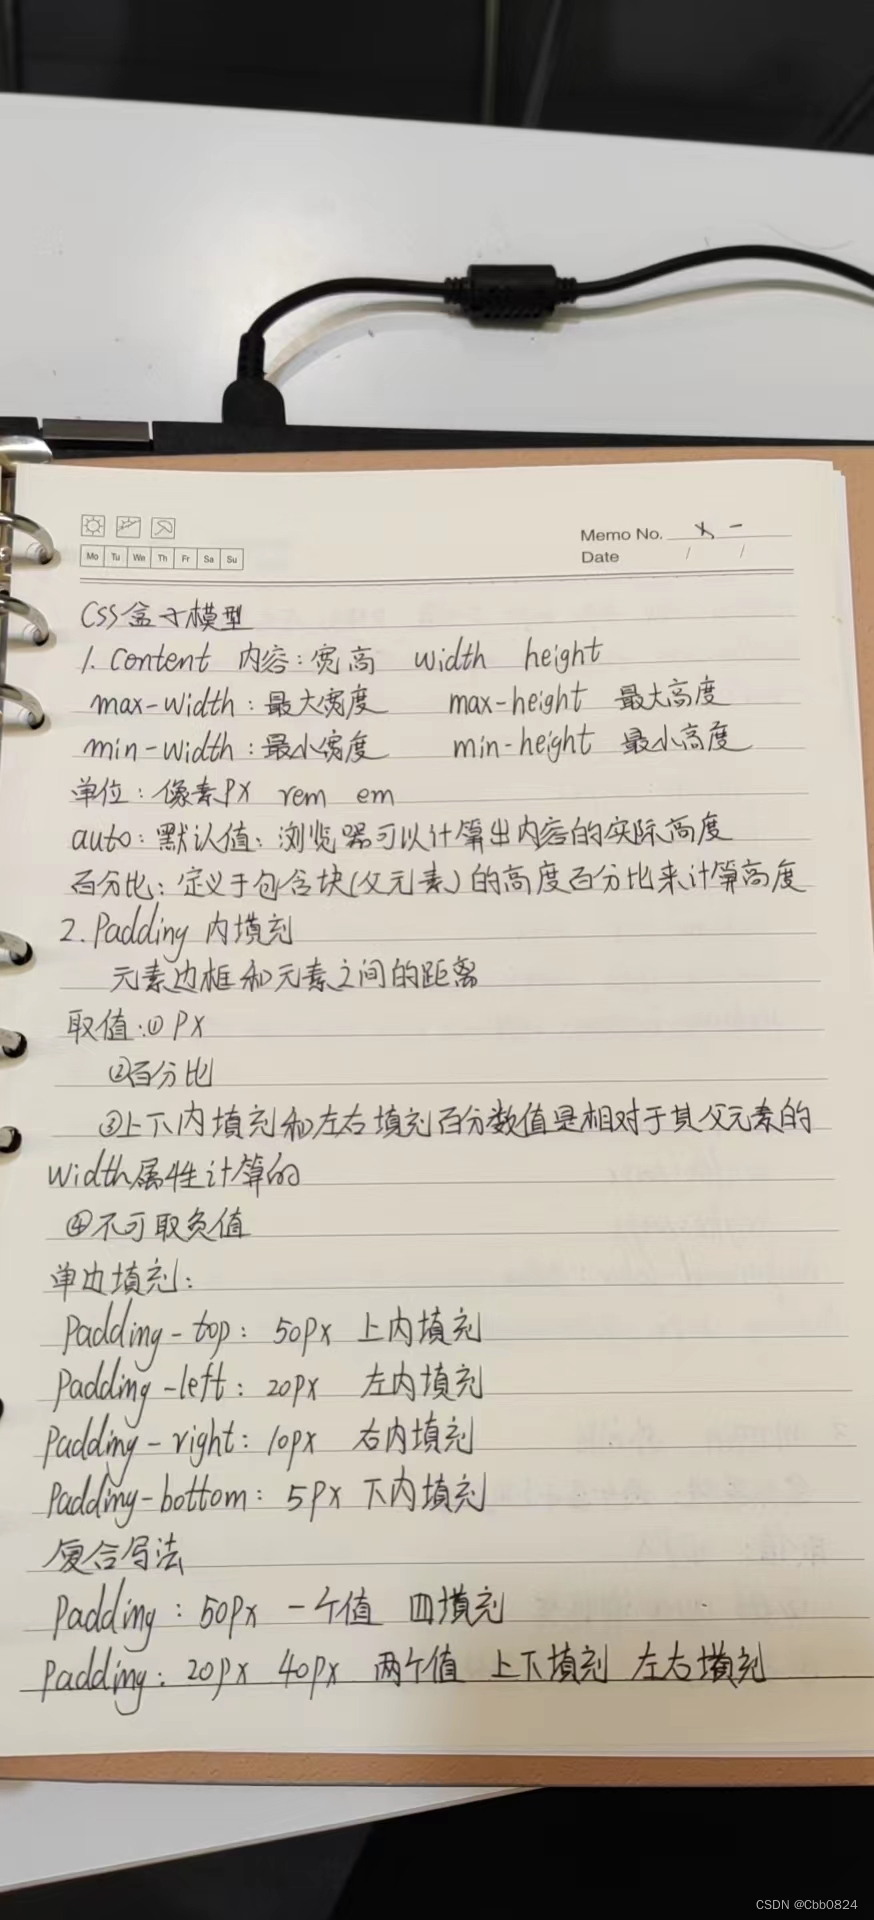 Memo No. X -
Mo Tu We Th Fr Sa Su
Date / /
CSS盒子模型
1. Content 内容:宽高 width height
max-width:最大宽度 max-height 最大高度
min-width:最小宽度 min-height 最小高度
单位:像素PX rem em
auto:默认值:浏览器可以计算出内容的实际高度
百分比:定义于包含块(父元素)的高度百分比来计算高度
2.Padding 内填充
元素边框和元素之间的距离
取值:① PX
②百分比
③上下内填充和左右填充百分数值是相对于其父元素的
Width属性计算的
④不可取负值
单边填充:
Padding-top: 50PX 上内填充
Padding-left: 20PX 左内填充
Padding-right: 10PX 右内填充
Padding-bottom: 5PX 下内填充
复合写法
Padding: 50PX 一个值 四填充
Padding: 20PX 40PX 两个值 上下填充 左右填充
CSDN @Cbb0824